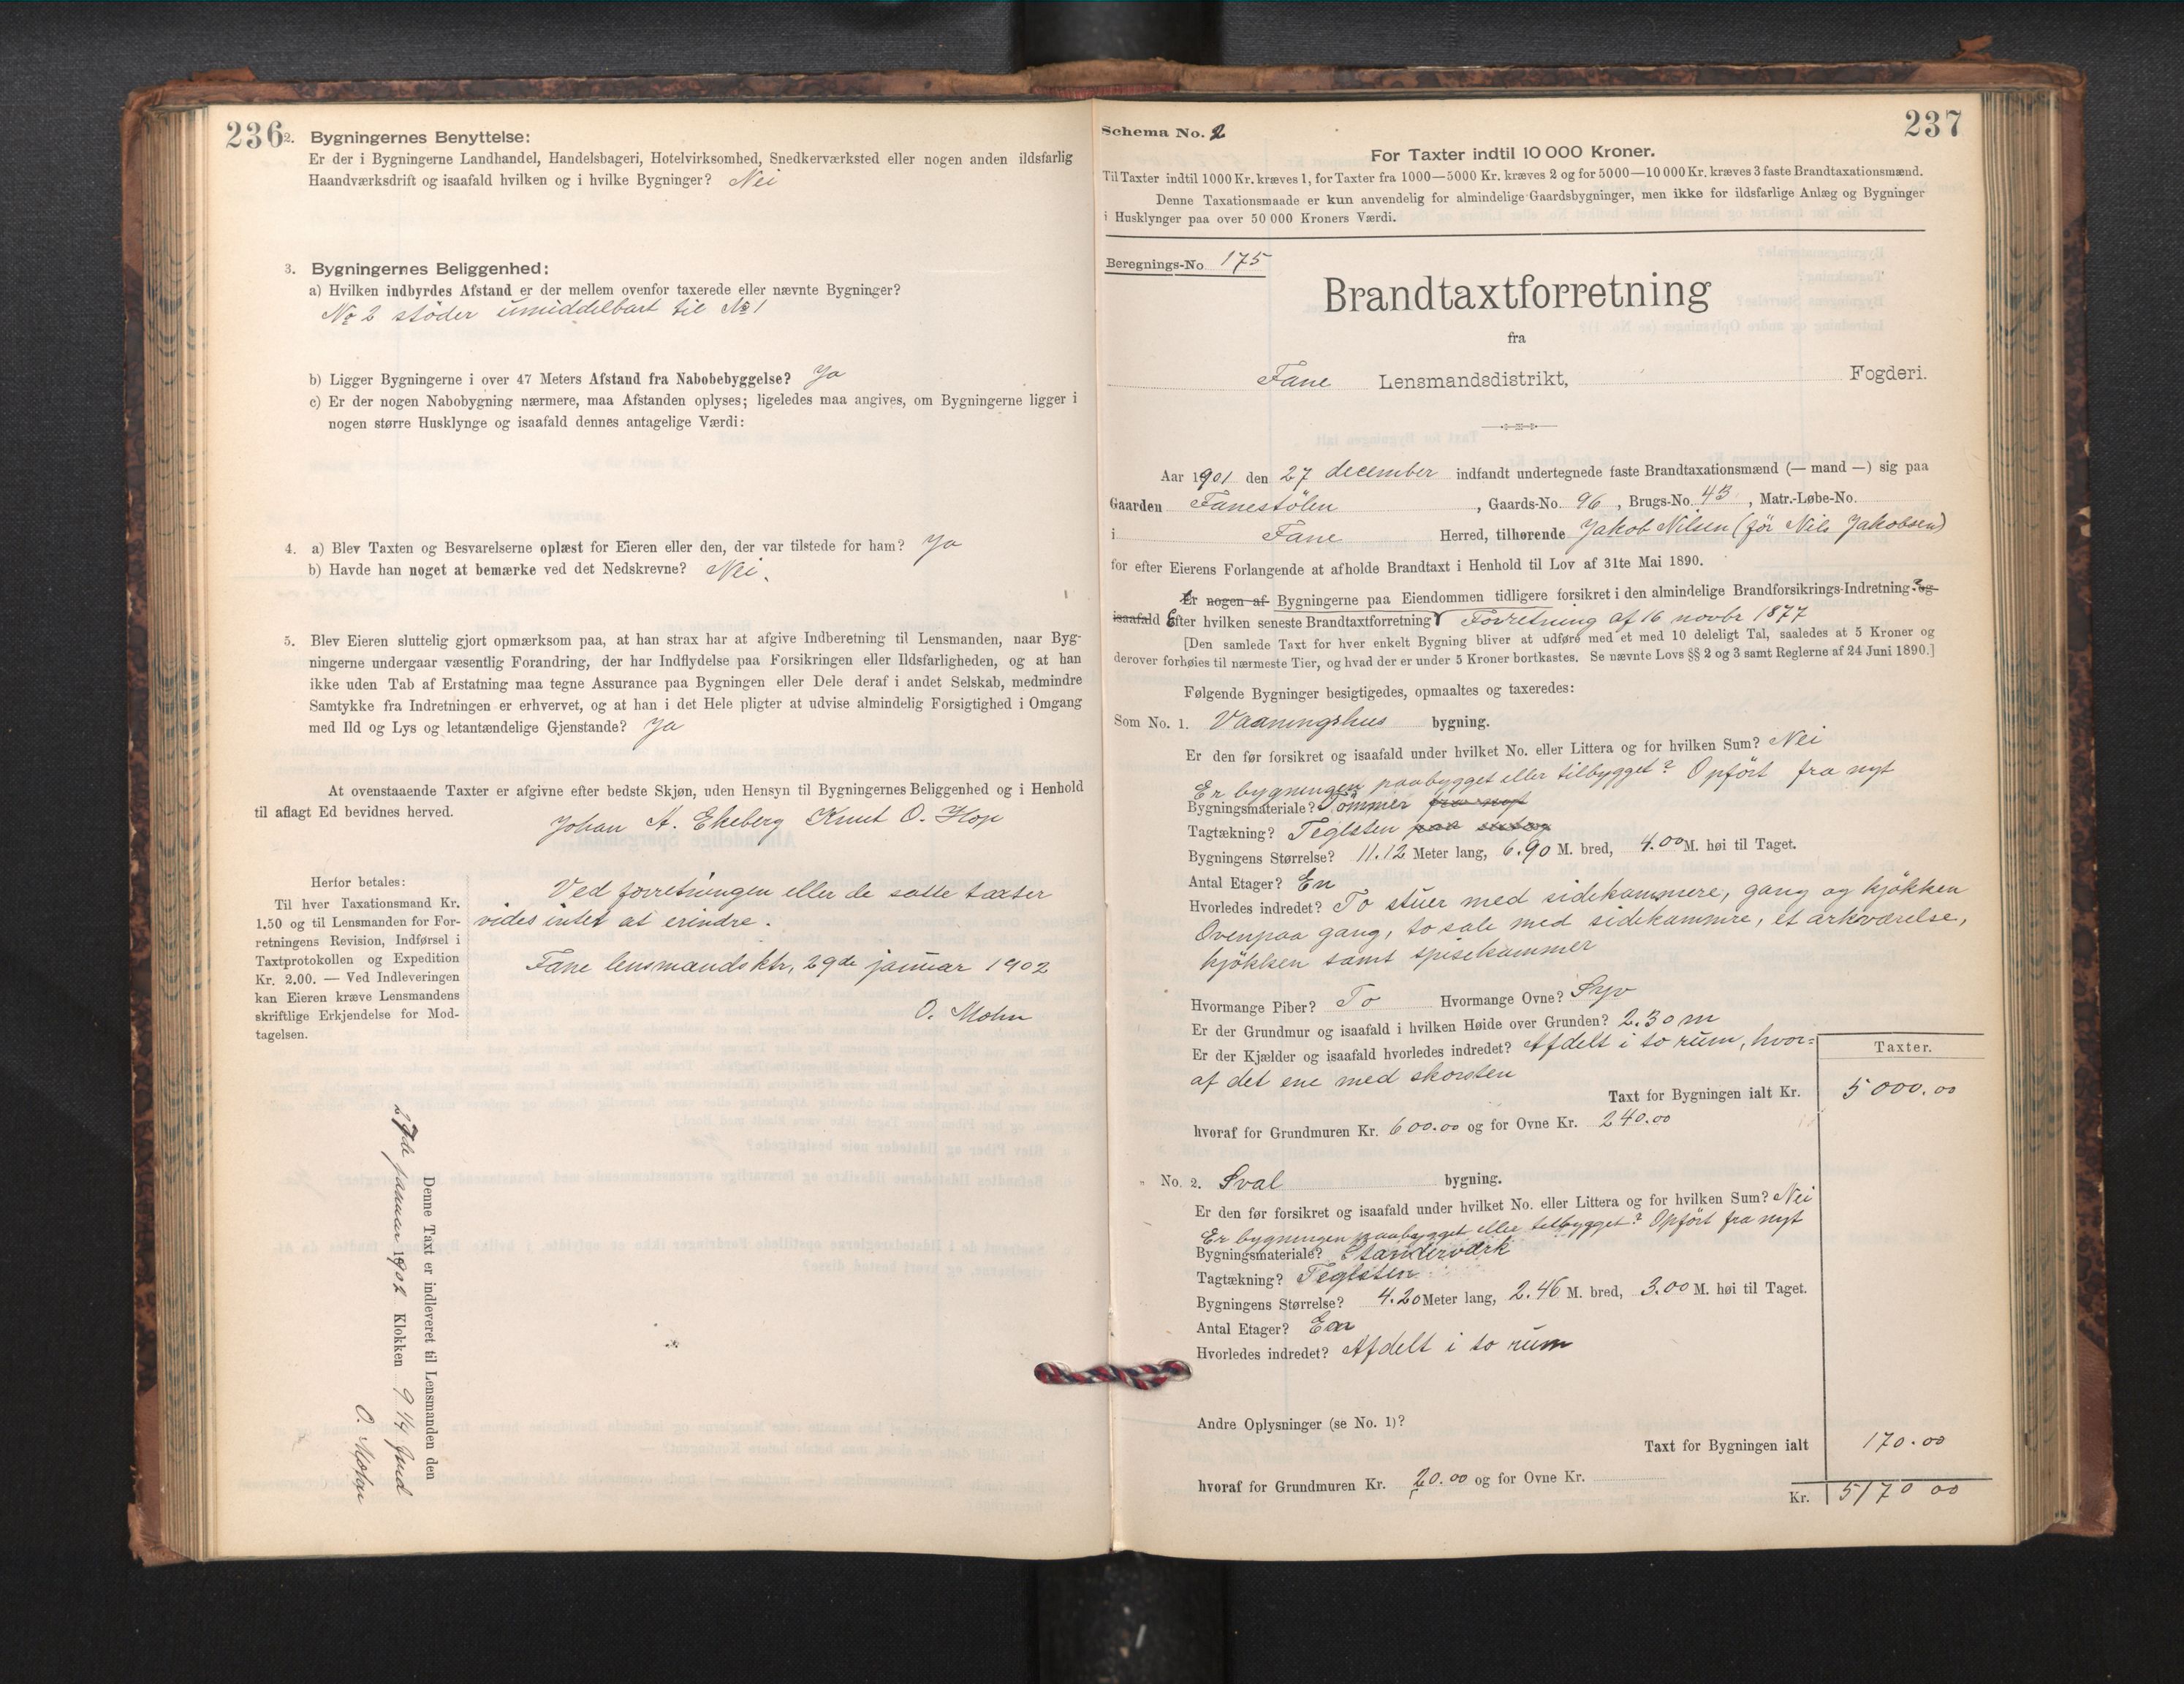 236
2. Bygningernes Benyttelse:
Er der i Bygningerne Landhandel, Handelsbageri, Hotelvirksomhed, Snedkerværksted eller nogen anden ildsfarlig
Haandværksdrift og isaafald hvilken og i hvilke Bygninger? Nei
3. Bygningernes Beliggenhed:
a) Hvilken indbyrdes Afstand er der mellem ovenfor taxerede eller nævnte Bygninger?
No 2 støder umiddelbart til No 1
b) Ligger Bygningerne i over 47 Meters Afstand fra Nabobebyggelse? Ja
c) Er der nogen Nabobygning nærmere, maa Afstanden oplyses; ligeledes maa angives, om Bygningerne ligger i
nogen større Husklynge og isaafald dennes antagelige Værdi:
4. a) Blev Taxten og Besvarelserne oplæst for Eieren eller den, der var tilstede for ham? Ja
b) Havde han noget at bemærke ved det Nedskrevne? Nei.
5. Blev Eieren sluttelig gjort opmærksom paa, at han strax har at afgive Indberetning til Lensmanden, naar Byg-
ningerne undergaar væsentlig Forandring, der har Indflydelse paa Forsikringen eller Ildsfarligheden, og at han
ikke uden Tab af Erstatning maa tegne Assurance paa Bygningen eller Dele deraf i andet Selskab, medmindre
Samtykke fra Indretningen er erhvervet, og at han i det Hele pligter at udvise almindelig Forsigtighed i Omgang
med Ild og Lys og letantændelige Gjenstande? Ja
At ovenstaaende Taxter er afgivne efter bedste Skjøn, uden Hensyn til Bygningernes Beliggenhed og i Henhold
til aflagt Ed bevidnes herved.
Johan A. Ekeberg Knut O. Hop
Herfor betales:
Til hver Taxationsmand Kr.
1.50 og til Lensmanden for For-
retningens Revision, Indførsel i
Taxtprotokollen og Expedition
Kr. 2.00. — Ved Indleveringen
kan Eieren kræve Lensmandens
skriftlige Erkjendelse for Mod-
tagelsen.
Ved forretningen eller de satte taxter
vides intet at erindre.
Fane lensmandsktr, 29de januar 1902
O. Mohn
Denne Taxt er indleveret til Lensmanden den
27de januar 1902 Klokken 9 1/4 fmd
O. Mohn
237
Schema No. 2
For Taxter indtil 10 000 Kroner.
Til Taxter indtil 1000 Kr. kræves 1, for Taxter fra 1000—5000 Kr. kræves 2 og for 5000—10 000 Kr. kræves 3 faste Brandtaxationsmænd.
Denne Taxationsmaade er kun anvendelig for almindelige Gaardsbygninger, men ikke for ildsfarlige Anlæg og Bygninger
i Husklynger paa over 50 000 Kroners Værdi.
Beregnings-No 175
Brandtaxtforretning
fra
Fane Lensmandsdistrikt, Fogderi.
Aar 1901 den 27 december indfandt undertegnede faste Brandtaxationsmænd (— mand —) sig paa
Gaarden Fanestølen, Gaards-No. 96, Brugs-No. 43, Matr.-Løbe-No.
i Fane Herred, tilhørende Jakob Nilsen (før Nils Jakobsen)
for efter Eierens Forlangende at afholde Brandtaxt i Henhold til Lov af 31te Mai 1890.
Er nogen af Bygningerne paa Eiendommen tidligere forsikret i den almindelige Brandforsikrings-Indretning? og
isaafald Efter hvilken seneste Brandtaxtforretning? Forretning af 16 novbr 1877
[Den samlede Taxt for hver enkelt Bygning bliver at udføre med et med 10 deleligt Tal, saaledes at 5 Kroner og
derover forhøies til nærmeste Tier, og hvad der er under 5 Kroner bortkastes. Se nævnte Lovs §§ 2 og 3 samt Reglerne af 24 Juni 1890.]
Følgende Bygninger besigtigedes, opmaaltes og taxeredes:
Som No. 1. Vaaningshus bygning.
Er den før forsikret og isaafald under hvilket No. eller Littera og for hvilken Sum? Nei
Er bygningen paabygget eller tilbygget? Opført fra nyt
Bygningsmateriale? Tømmer fra nyt
Tagtækning? Teglsten paa
Bygningens Størrelse? 11.12 Meter lang, 6.90 M. bred, 4.00 M. høi til Taget.
Antal Etager? En
Hvorledes indredet? To stuer med sidekammere, gang og kjøkken
Ovenpaa gang, to sale med sidekammre, et arkværelse,
kjøkken samt spisekammer
Hvormange Piber? To Hvormange Ovne? Syv
Er der Grundmur og isaafald i hvilken Høide over Grunden? 2.30 m
Er der Kjælder og isaafald hvorledes indredet? Afdelt i to rum, hvor=
af det ene med skorsten
Taxter.
Taxt for Bygningen ialt Kr. 5000.00
hvoraf for Grundmuren Kr. 600.00 og for Ovne Kr. 240.00
" No. 2. Sval bygning.
Er den før forsikret og isaafald under hvilket No. eller Littera og for hvilken Sum? Nei
Er bygningen paabygget eller tilbygget? Opført fra nyt
Bygningsmateriale? Standerværk
Tagtækning? Teglsten
Bygningens Størrelse? 4.20 Meter lang, 2.46 M. bred, 3.00 M. høi til Taget.
Antal Etager? En
Hvorledes indredet? Afdelt i to rum
Andre Oplysninger (se No. 1)?
Taxt for Bygningen ialt 170.00
hvoraf for Grundmuren Kr. 20.00 og for Ovne Kr.
Kr. 5170 00